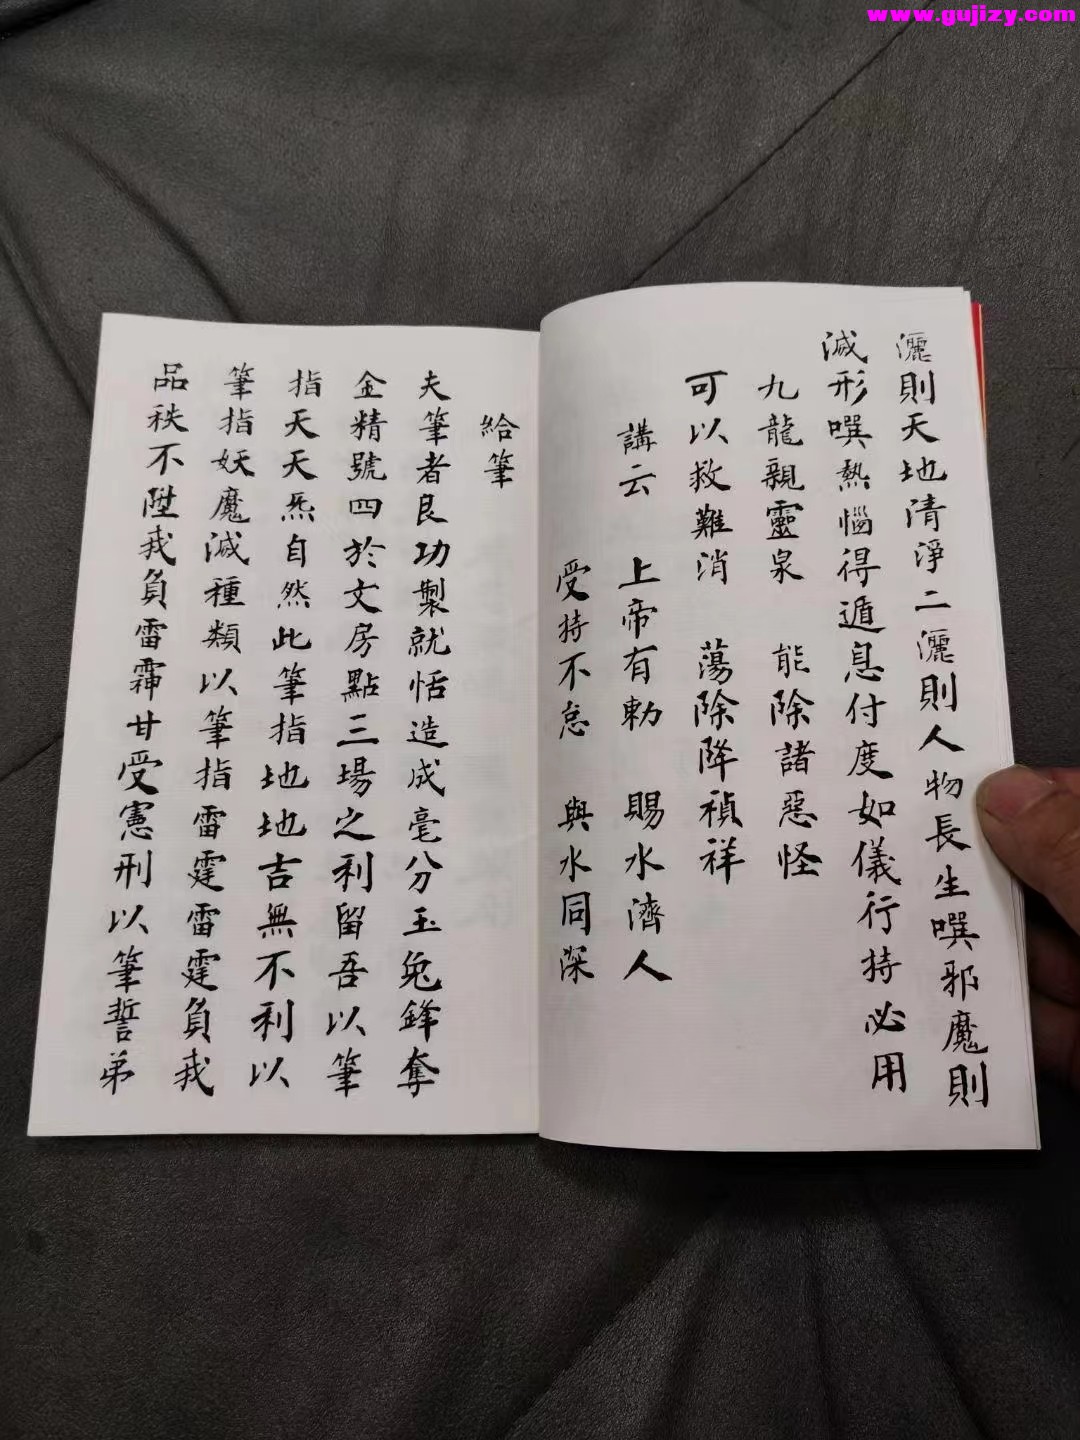 www.gujizy.com
灑則天地清淨二灑則人物長生噀邪魔則
滅形噀熱惱得遁息付度如儀行持必用
九龍親靈泉 能除諸惡怪
可以救難消 蕩除降禎祥
講云 上帝有勅 賜水濟人
受持不怠 與水同深
給筆
夫筆者良功製就恬造成毫分玉兔鋒奪
金精號四於文房點三場之利留吾以筆
指天天炁自然此筆指地地吉無不利以
筆指妖魔滅種類以筆指雷霆雷霆負我
品秩不陞我負雷霹甘受憲刑以筆誓弟